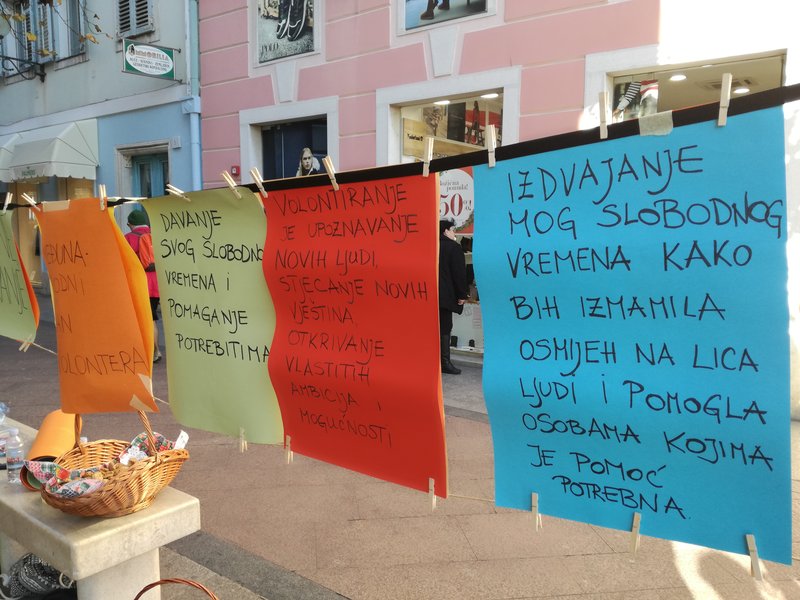 DAVANJE
SVOG SLOBODNO
VREMENA I
POMAGANJE
POTREBITIMA
VOLONTIRANJE
JE UPOZNAVANJE
NOVIH LJUDI,
STJECANJE NOVIH
VJEŠTINA,
OTKRIVANJE
VLASTITIH
AMBICIJA I
MOGUĆNOSTI
IZDVAJANJE
MOG SLOBODNOG
VREMENA KAKO
BIH IZMAMILA
OSMIJEH NA LICA
LJUDI I POMOGLA
OSOBAMA KOJIMA
JE POMOĆ
POTREBNA.
ĐUNA-
ODNI
AN
OLONTERA
50%